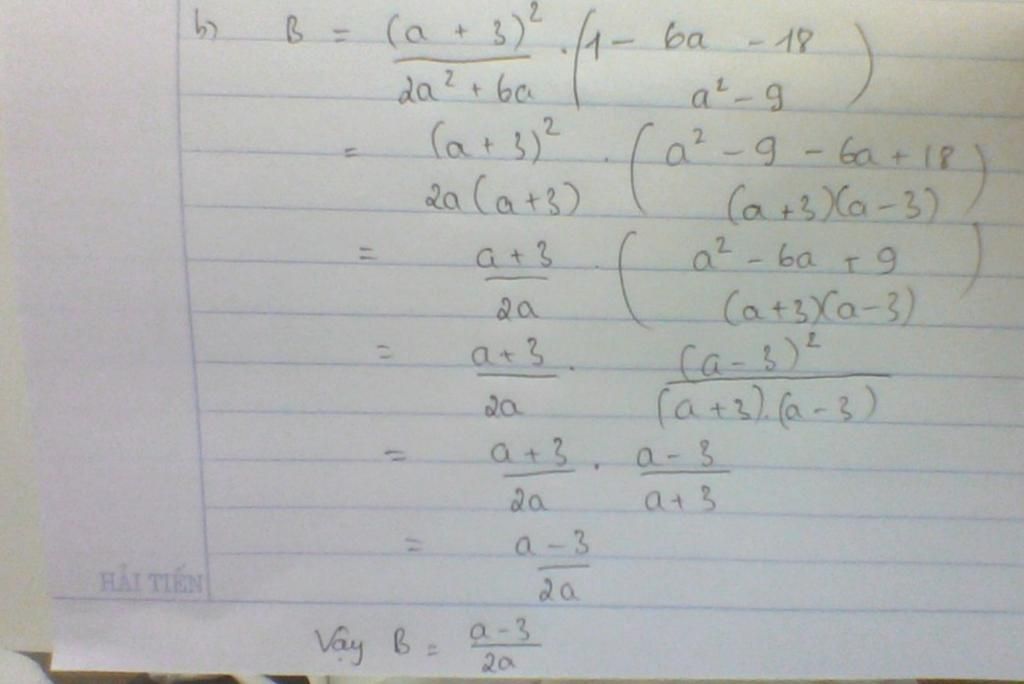 b) B = (a + 3)² / (2a² + 6a) . (1 - (6a - 18) / (a² - 9))
= (a + 3)² / (2a(a + 3)) . ((a² - 9 - 6a + 18) / ((a + 3)(a - 3)))
= (a + 3) / 2a . ((a² - 6a + 9) / ((a + 3)(a - 3)))
= (a + 3) / 2a . (a - 3)² / ((a + 3).(a - 3))
= (a + 3) / 2a . (a - 3) / (a + 3)
= (a - 3) / 2a
HẢI TIẾN
Vậy B = (a - 3) / 2a